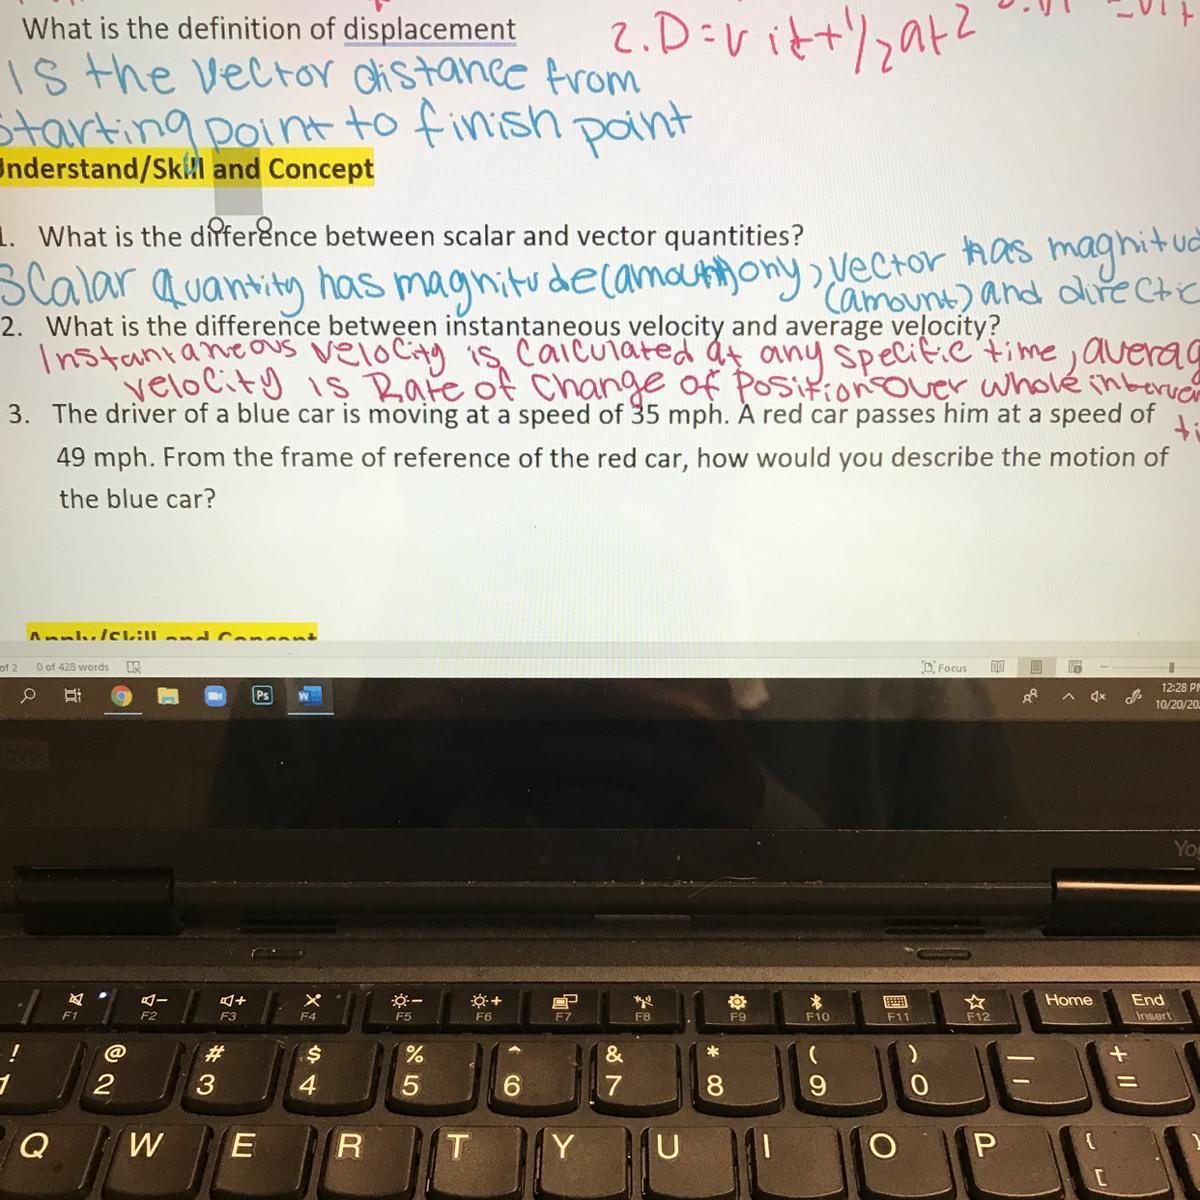 What is the definition of displacement
2. D = v it + 1/2 at2
is the vector distance from
starting point to finish point
Understand/Skill and Concept
1. What is the difference between scalar and vector quantities?
Scalar Quantity has magnitude (amount) ony, vector has magnitud
(amount) and directio
2. What is the difference between instantaneous velocity and average velocity?
Instantaneous velocity is Calculated at any specific time, averag
velocity is Rate of Change of Position over whole
3. The driver of a blue car is moving at a speed of 35 mph. A red car passes him at a speed of
49 mph. From the frame of reference of the red car, how would you describe the motion of
the blue car?
Apply/Skill and Concept
of 2 0 of 428 words Focus
Ps W
12:28 PM
10/20/20
Yo
F1 F2 F3 F4 F5 F6 F7 F8 F9 F10 F11 F12 Home End
Insert
! @ # $ % ^ & * ( ) — +
1 2 3 4 5 6 7 8 9 0 - =
Q W E R T Y U I O P { [